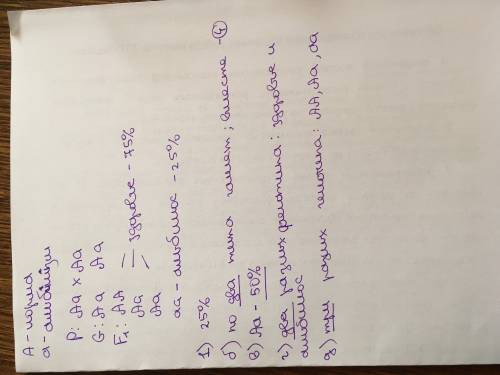 А - норма
а - альбинизм
P: Aa x Aa
G: Aa Aa
F₁: AA
Aa
Aa
здоровые - 75%
aa - альбинос - 25%
1) 25%
б) по два типа гамет; вместе - 4
в) Aa - 50%
г) два разных фенотипа: здоровые и
альбинос
д) три разных генотипа: AA, Aa, aa